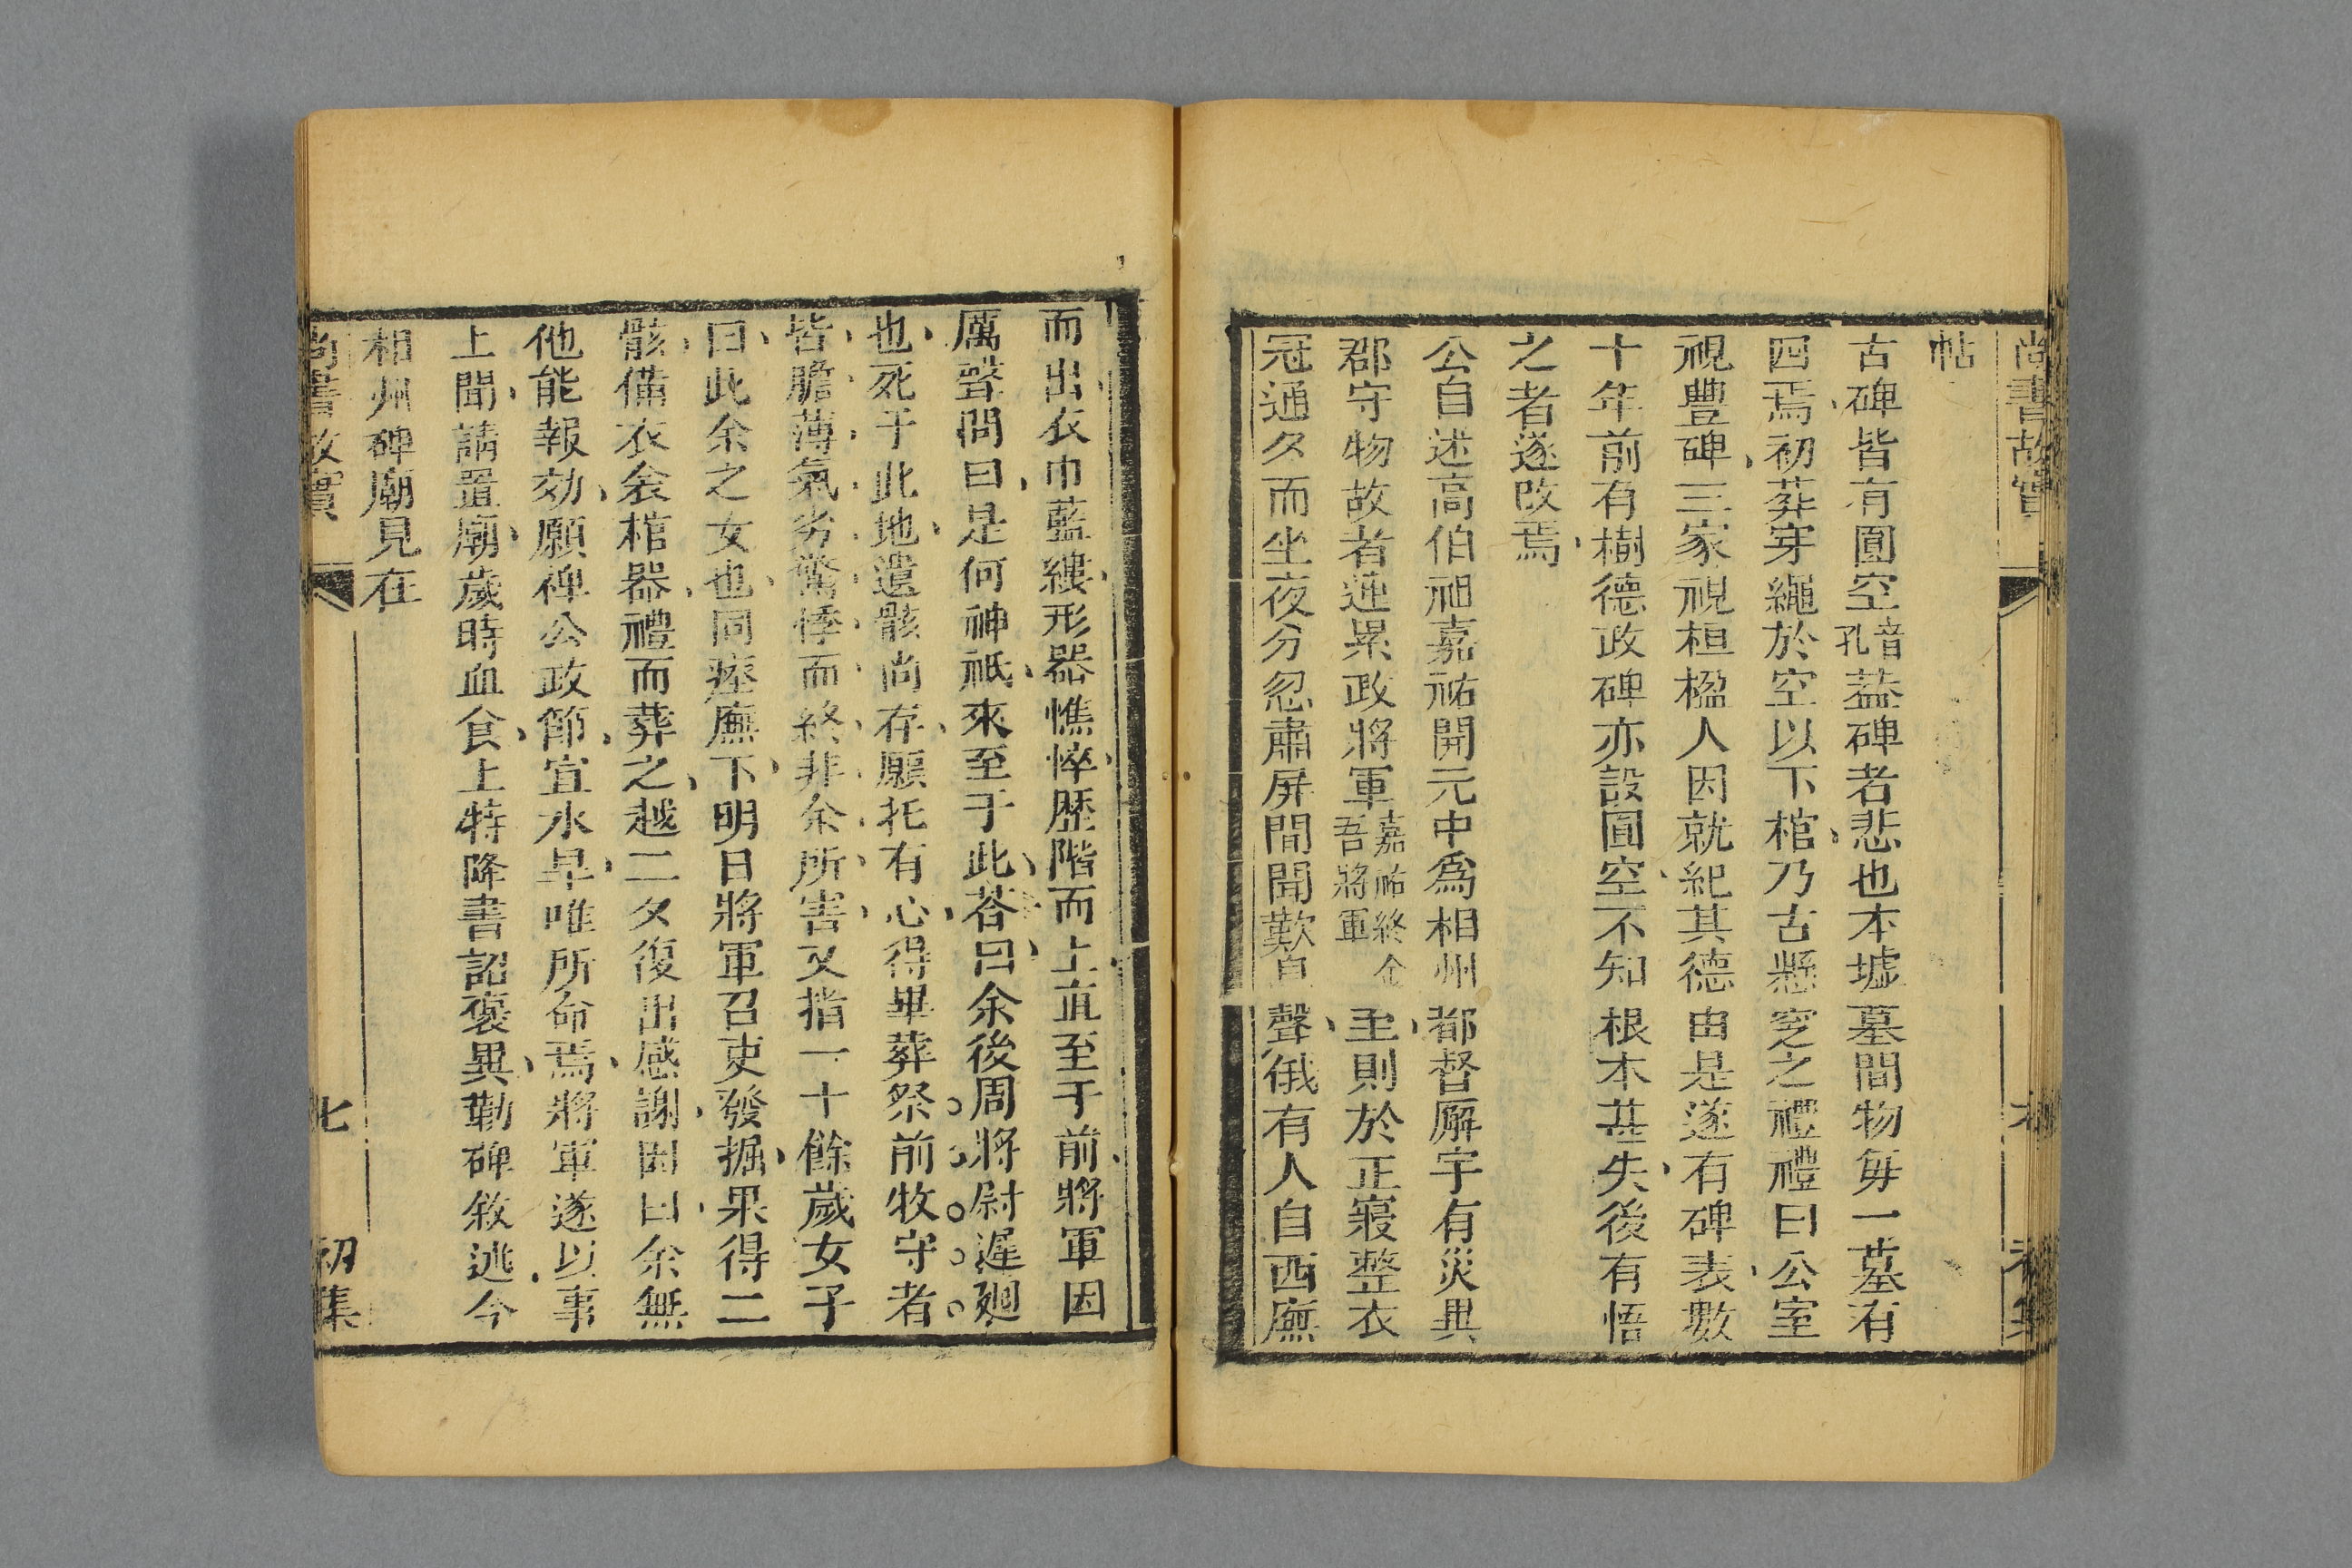 尚書故實
帖
古碑皆有圓空音孔葢碑者悲也本墟墓間物毎一墓有
四焉初葬穿繩於空以下棺乃古懸窆之禮禮曰公室
視豐碑三家視桓楹人因就紀其德由是遂有碑表數
十年前有樹德政碑亦設圓空不知根本甚失後有悟
之者遂改焉
公自述高伯祖嘉祐開元中爲相州都督廨宇有災異
郡守物故者連累政將軍嘉祐終金吾將軍至則於正寢整衣
冠通夕而坐夜分忽肅屏間聞歎息聲俄有人自西廡
而出衣巾藍縷形器憔悴歷階而上直至于前將軍因
厲聲問曰是何神祇來至于此荅曰余後周將尉遲廻
也死于此地遺骸尚存願托有心得畢葬祭前牧守者
皆膽薄氣劣驚悸而終非余所害又指一十餘歲女子
曰此余之女也同瘞廡下明日將軍召吏發掘果得二
骸備衣衾棺器禮而葬之越二夕復出感謝因曰余無
他能報効願裨公政節宣水旱唯所命焉將軍遂以事
上聞請置廟歲時血食上特降書詔褒異勒碑敘述今
相州碑廟見在
尚書故實
七
初集